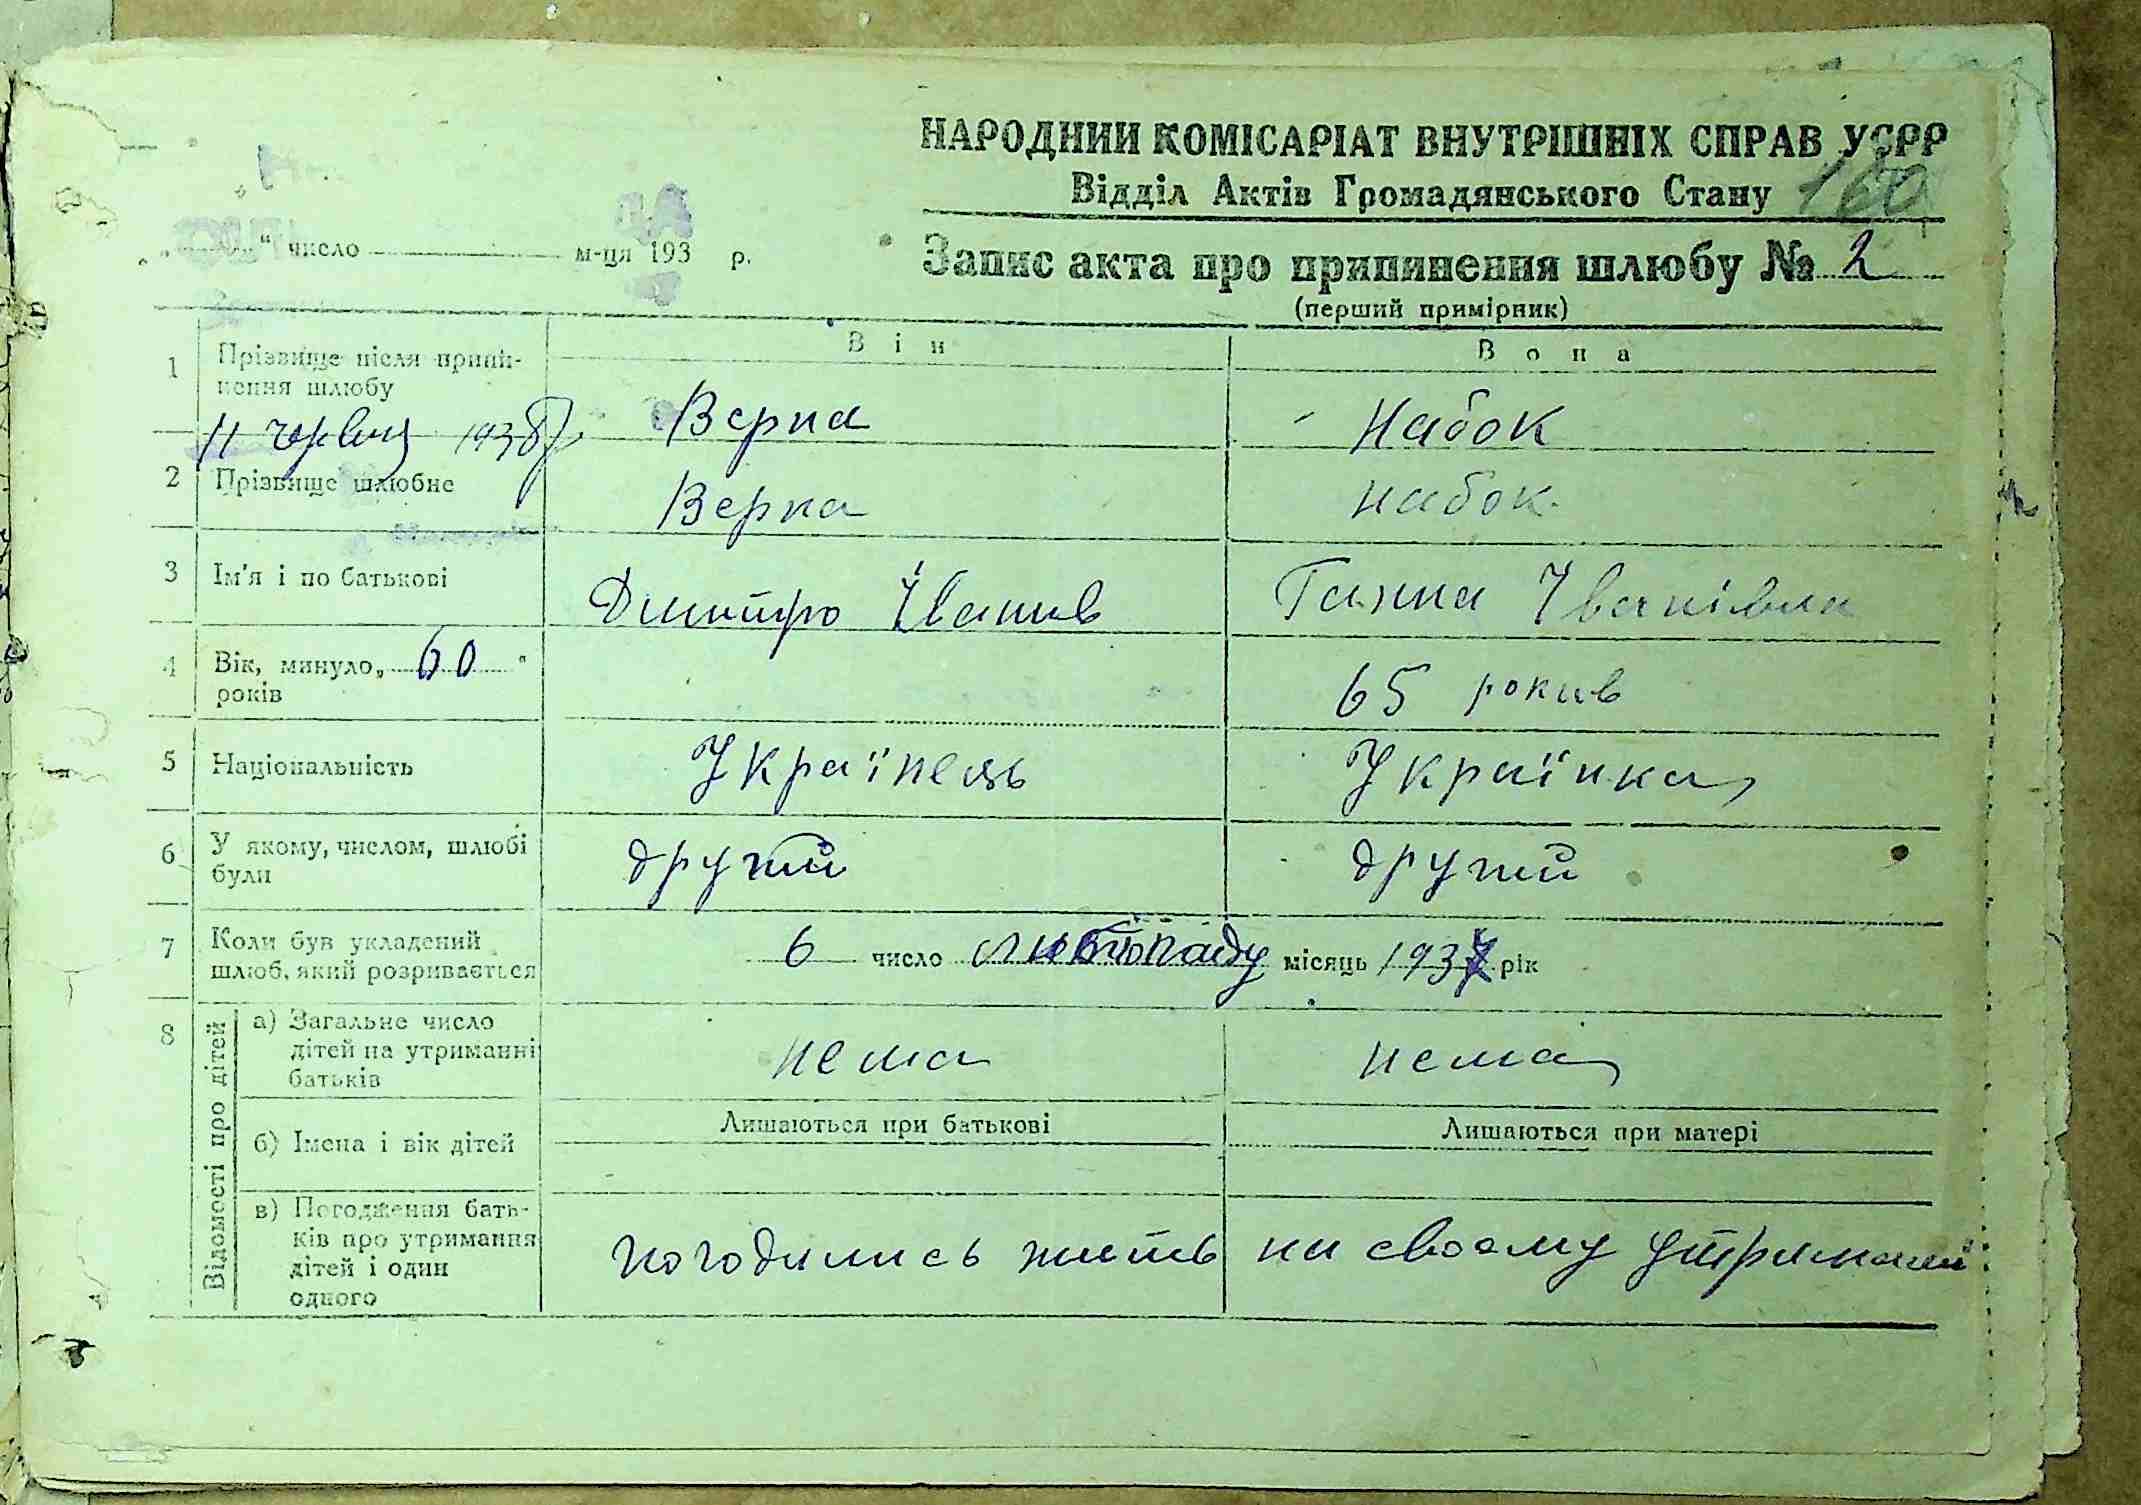 НАРОДНИЙ КОМІСАРІАТ ВНУТРІШНІХ СПРАВ УСРР
Відділ Актів Громадянського Стану 160
„ “ число м-ця 193 р.
Запис акта про припинення шлюбу № 2
(перший примірник)
Він Вона
1 Прізвище після припинення шлюбу Верна Набок
11 червня 1938 р.
2 Прізвище шлюбне Верна Набок.
3 Ім'я і по батькові Дмитро Іванив Ганна Іванівна
4 Вік, минуло „ 60 “ років 65 рокив
5 Національність Українець Українка
6 У якому, числом, шлюбі були другий другий
7 Коли був укладений шлюб, який розривається 6 число листопаду місяць 1937 рік
8 Відомості про дітей
а) Загальне число дітей на утриманні батьків нема нема
б) Імена і вік дітей Лишаються при батькові Лишаються при матері
в) Погодження батьків про утримання дітей і один одного погодились жить на своему утриманні